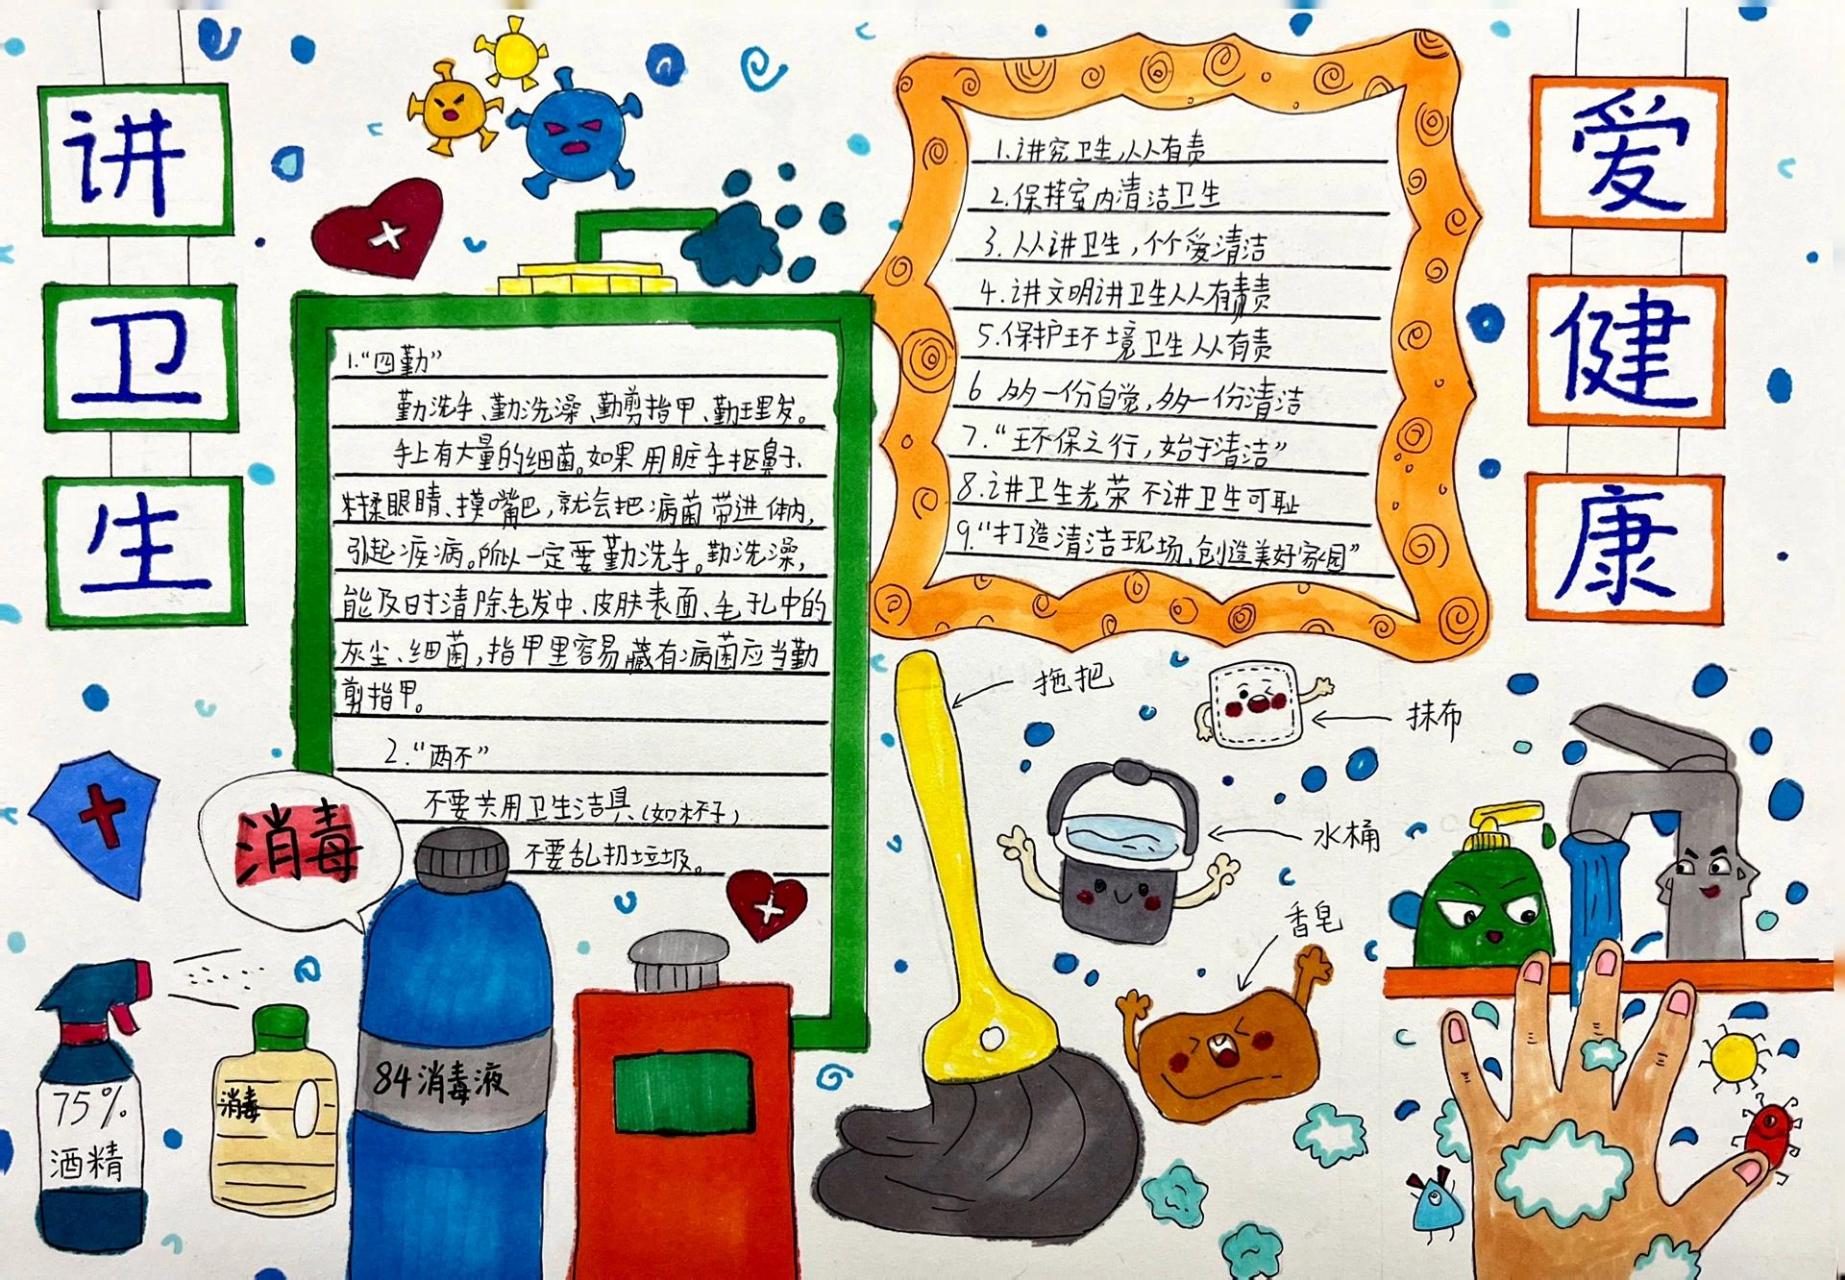 讲
卫
生
爱
健
康
1.“四勤”
勤洗手、勤洗澡、勤剪指甲、勤理发。
手上有大量的细菌。如果用脏手抠鼻子、
揉眼睛、摸嘴巴，就会把病菌带进体内，
引起疾病。所以一定要勤洗手。勤洗澡，
能及时清除毛发中、皮肤表面、毛孔中的
灰尘、细菌，指甲里容易藏有病菌应当勤
剪指甲。
2.“两不”
不要共用卫生洁具、(如杯子)
不要乱扔垃圾。
1.讲究卫生,人人有责
2.保持室内清洁卫生
3.人人讲卫生，个个爱清洁
4.讲文明讲卫生人人有责
5.保护环境卫生人人有责
6 多一份自觉，多一份清洁
7.“环保之行，始于清洁”
8.讲卫生光荣 不讲卫生可耻
9.“打造清洁现场、创造美好家园”
拖把
抹布
水桶
香皂
消毒
75%
酒精
消毒
84消毒液